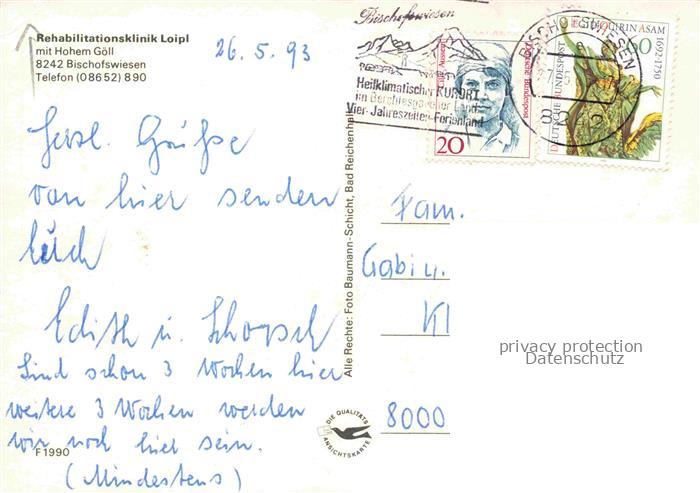 Rehabilitationsklinik Loipl
mit Hohem Göll
8242 Bischofswiesen
Telefon (08652) 890
26.5.93
Herzl. Grüße
von hier senden
Euch
Edith u.
Sind schon 3 Wochen hier
weitere 3 Wochen werden
wir noch hier sein.
(Mindestens)
F 1990
Alle Rechte: Foto Baumann-Schicht, Bad Reichenhall
Bischofswiesen
Heilklimatischer KURORT
im Berchtesgadener Land
Vier-Jahreszeiten-Ferienland
Deutsche Bundespost
20
BISCHOFSWIESEN
8242
EGID QUIRIN ASAM
1692-1750
DEUTSCHE BUNDESPOST
60
Fam.
Gabi u.
Kl
8000
DIE QUALITÄTS
ANSICHTSKARTE
privacy protection
Datenschutz